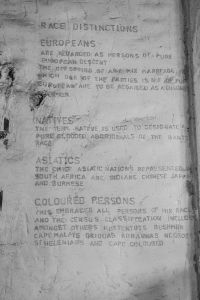 RACE DISTINCTIONS
EUROPEANS
ARE REGARDED AS PERSONS OF PURE
EUROPEAN DESCENT
THE OFFSPRING OF ANY MIX MARRIAGE
WHICH ONE OF THE PARTIES IS NOT OF PURE
EUROPEAN ARE TO BE REGARDED AS
NATIVES
THE TERM NATIVE IS USED TO DESIGNATE
PURE BLOODED ABORIGINALS OF THE BANTU
RACE
ASIATICS
THE CHIEF ASIATIC NATIONS REPRESENTED
SOUTH AFRICA ARE INDIANS CHINESE JAPA
AND BURMESE
COLOURED PERSONS
THIS EMBRACES ALL PERSONS OF MIX RACE
AND THE CENSUS CLASSIFICATION INCLUDE
AMONGST OTHERS HOTTENTOTS BUSHMEN
CAPE MALAYS GRIQUAS KORANNAS NEGROES
ST HELENIANS AND CAPE COLOURED